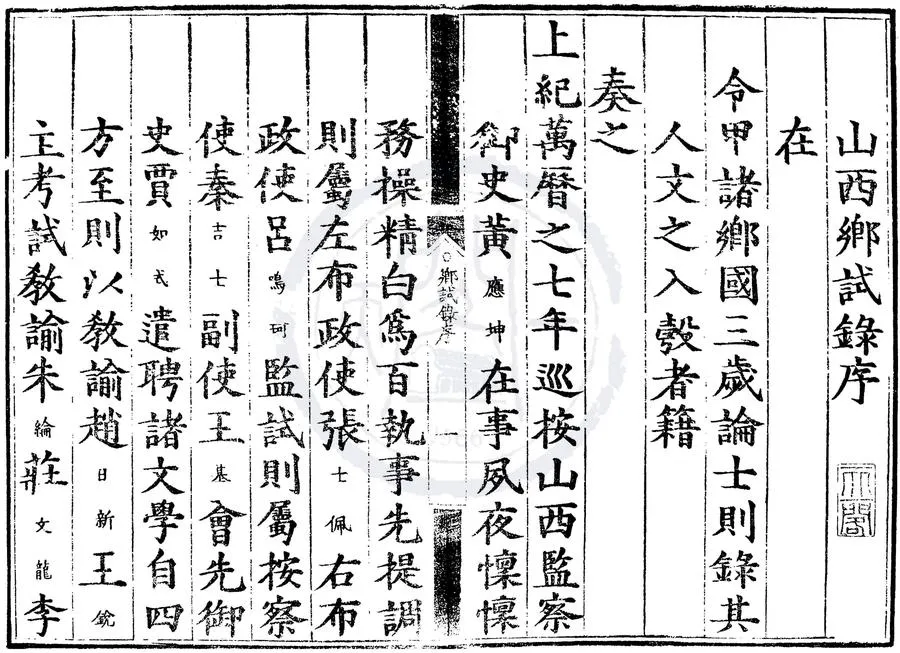 山西鄉試錄序
天一閣
在
令甲諸鄉國三歲論士則錄其
人文之入彀者籍
奏之
上紀萬曆之七年巡按山西監察
御史黃應坤在事夙夜懍懍
鄉試錄序 一
務操精白爲百執事先提調
則屬左布政使張士佩右布
政使呂鳴珂監試則屬按察
使秦吉士副使王基會先御
史賈如式遣聘諸文學自四
方至則以教諭趙日新王銳
主考試教諭朱綸莊文龍李